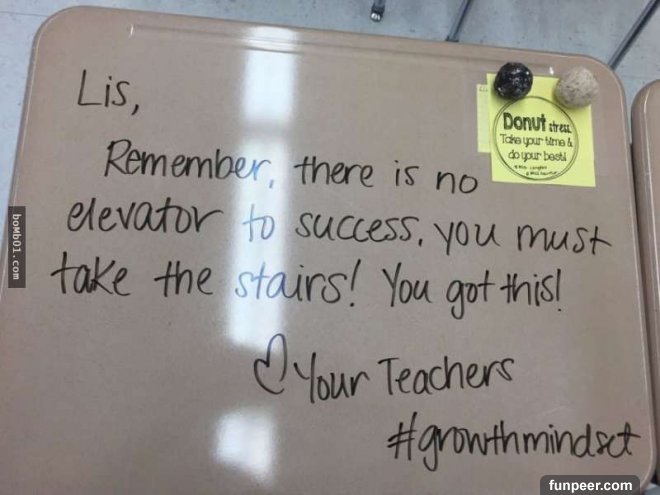 Lis,
Remember, there is no
elevator to success. you must
take the stairs! You got this!
♡ Your Teachers
#growthmindset
Donut stress
Take your time &
do your best!
bomb01.com
funpeer.com